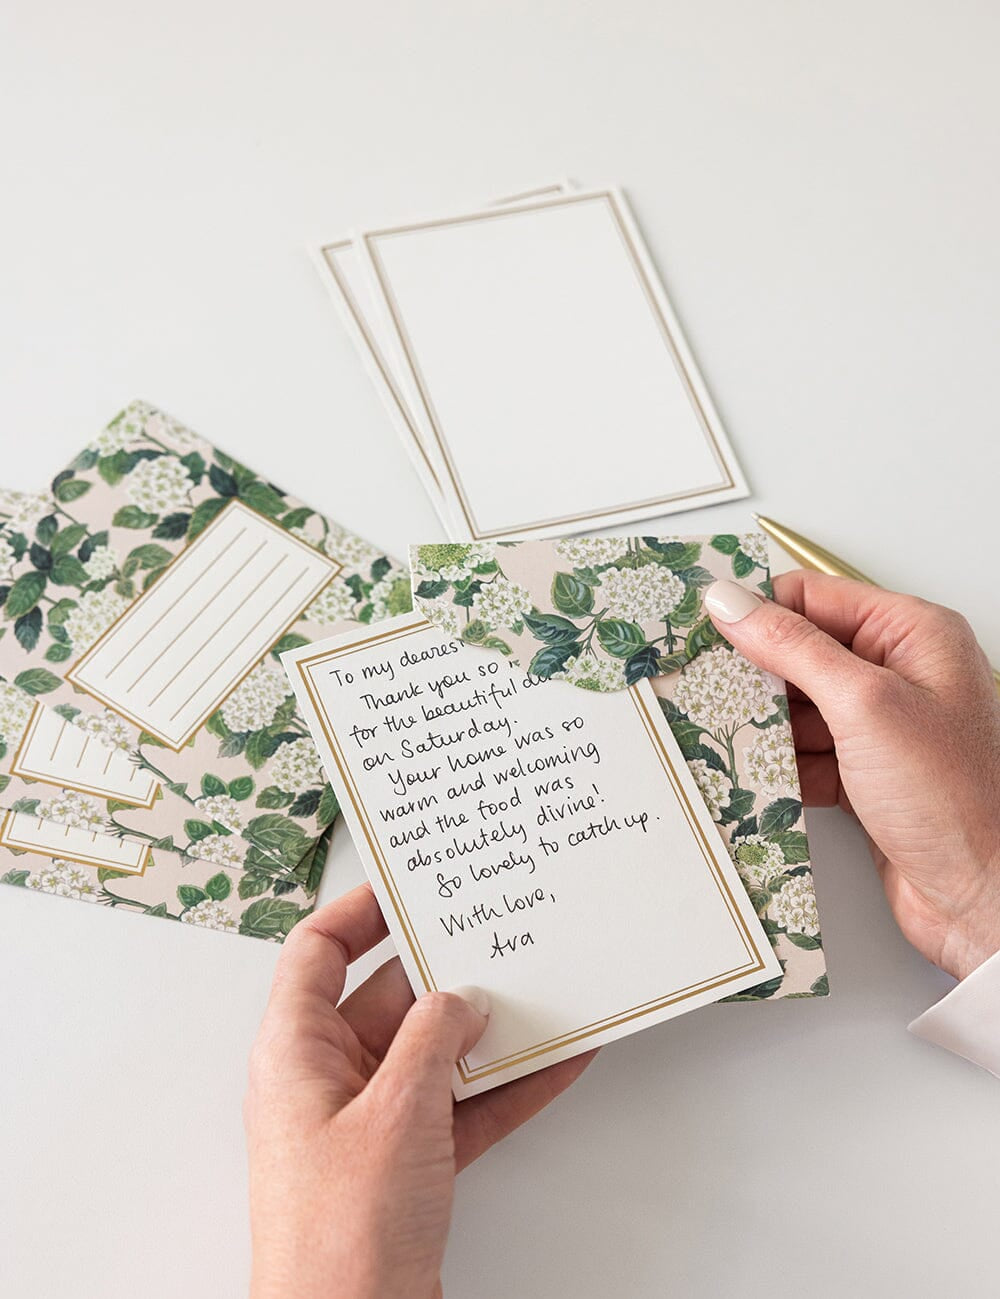 To my dearest
Thank you so
for the beautiful
on Saturday.
Your home was so
warm and welcoming
and the food was
absolutely divine!
So lovely to catch up.
With love,
Ava